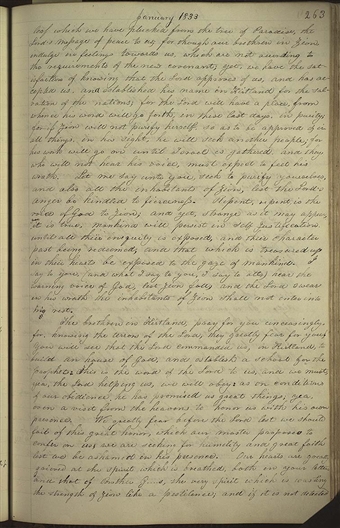 January 1833
263
leaf which we have plucked from the tree of Paradise, the
Lord's message of peace to us; for though our brethren in Zion,
indulge in feelings towards us, which are not according to
the requirements of the new covenant, yet, we have the sat-
isfaction of knowing that the Lord approves of us, and has ac-
cepted us, and established his name in Kirtland for the sal-
vation of the nations; for the Lord will have a place, from
whence his word will go forth, in these last days, in purity,
for if Zion will not purify herself so as to be approved of in
all things, in his sight, he will seek another people; for
his work will go on until Israel is gathered and they
who will not hear his voice, must expect to feel his
wrath. Let me say unto you, seek to purify yourselves,
and also all the inhabitants of Zion, lest the Lord's
anger be kindled to fierceness. Repent, repent is the
voice of God to Zion; and yet, strange as it may appear,
it is true, mankind will persist in self justification
until all their iniquity is exposed, and their character
past being redeemed, and that which is treasured up
in their hearts be exposed to the gaze of mankind. I
say to you, (and what I say to you, I say to all,) hear the
warning voice of God, lest Zion fall, and the Lord swear
in his wrath the inhabitants of Zion shall not enter into
my rest.
The brethren in Kirtland pray for you unceasingly,
for, knowing the terrors of the Lord, they greatly fear for you;
you will see that the Lord commanded us, in Kirtland, to
build an house of God, and establish a school for the
prophets: this is the word of the Lord to us, and we must,
yea, the Lord helping us, we will obey: as on conditions
of our obedience, he has promised us great things, yea,
even a visit from the heavens to honor us with his own
presence. We greatly fear before the Lord lest we should
fail of this great honor, which our master proposes to
confer on us; we are seeking for humility and great faith
lest we be ashamed in his presence. Our hearts are greatly
grieved at the spirit which is breathed, both in your letter
and that of brother G's, the very spirit which is wasting
the strength of Zion like a pestilence; and if it is not detected